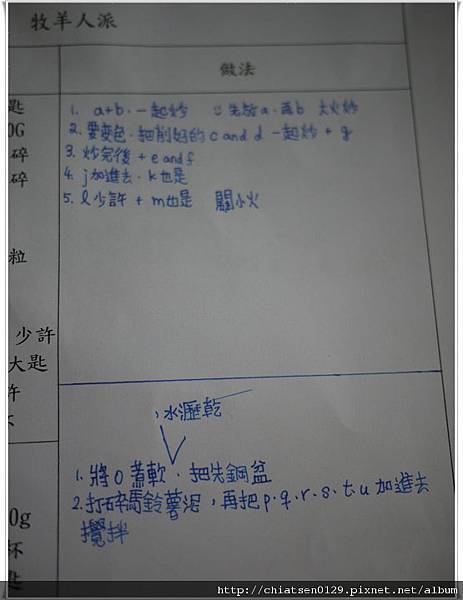 牧羊人派
做法
匙
0G
碎
碎
粒
少許
大匙
許
0g
杯
匙
1. a+b.一起炒 先放a.再b 大火炒
2. 要变色.把削好的c and d 一起炒 + g
3. 炒完後 + e and f
4. j加進去.k也是
5. l少許 + m也是 關小火
,水瀝乾
1. 將o煮軟.把先鋼盆
2. 打碎馬鈴薯泥,再把p.q.r.s.t.u加進去
攪拌
http://chiatsen0129.pixnet.net/album